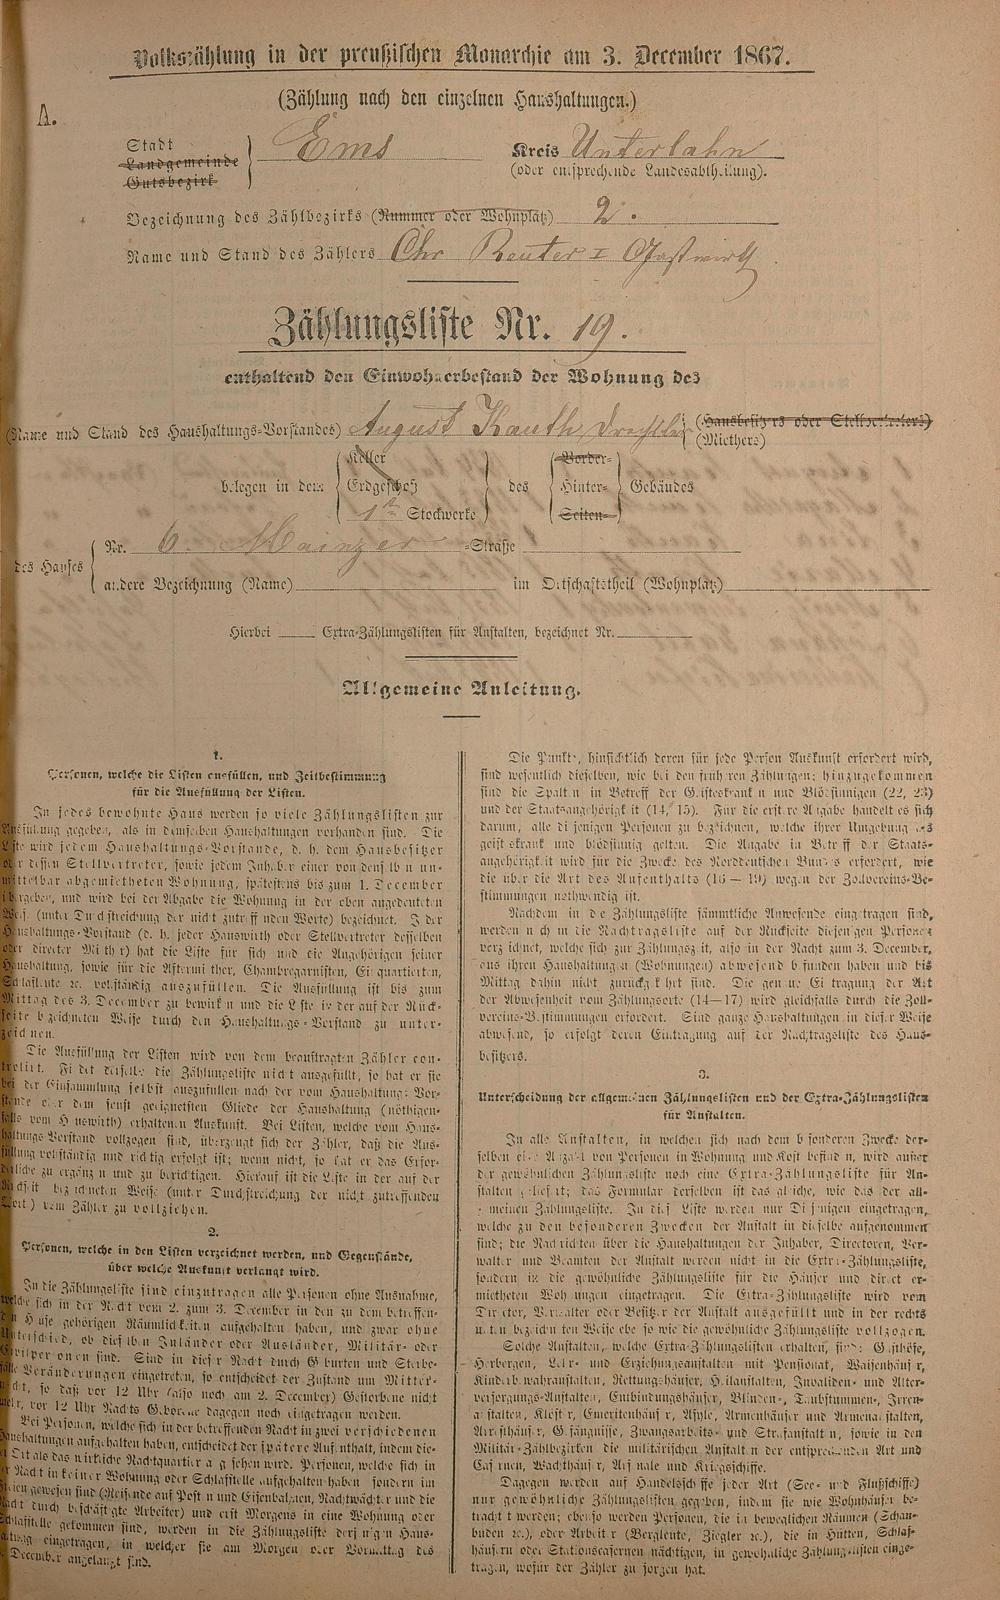 Volkszählung in der preußischen Monarchie am 3. December 1867.
(Zählung nach den einzelnen Haushaltungen.)
A.
Stadt
Landgemeinde
Gutsbezirk
Ems
Kreis Unterlahn
(oder entsprechende Landesabtheilung).
Bezeichnung des Zählbezirks (Nummer oder Wohnplatz) 2.
Name und Stand des Zählers Chr Reuter I Gastwirth
Zählungsliste Nr. 19.
enthaltend den Einwohnerbestand der Wohnung des
(Name und Stand des Haushaltungs-Vorstandes) August Kauth Drechsler
(Hausbesitzers oder Stellvertreters)
(Miethers)
belegen in dem
Keller
Erdgeschoß
1ten Stockwerke
des
Vorder-
Hinter-
Seiten-
Gebäudes
des Hauses
Nr. 6. Mainzer -Straße
andere Bezeichnung (Name) im Ortschaftstheil (Wohnplatz)
Hierbei Extra-Zählungslisten für Anstalten, bezeichnet Nr.
Allgemeine Anleitung.
1.
Personen, welche die Listen ausfüllen, und Zeitbestimmung
für die Ausfüllung der Listen.
In jedes bewohnte Haus werden so viele Zählungslisten zur
Ausfüllung gegeben, als in demselben Haushaltungen vorhanden sind. Die
Liste wird jedem Haushaltungs-Vorstande, d. h. dem Hausbesitzer
oder dessen Stellvertreter, sowie jedem Inhaber einer von denselben un-
mittelbar abgemietheten Wohnung, spätestens bis zum 1. December
übergeben, und wird bei der Abgabe die Wohnung in der oben angedeuteten
Weise (unter Durchstreichung der nicht zutreffenden Worte) bezeichnet. In der
Haushaltungs-Vorstand (d. h. jeder Hauswirth oder Stellvertreter desselben
oder directer Miether) hat die Liste für sich und die Angehörigen seiner
Haushaltung, sowie für die Aftermiether, Chambregarnisten, Einquartierten,
Schlafleute ec. vollständig auszufüllen. Die Ausfüllung ist bis zum
Mittag des 3. December zu bewirken und die Liste in der auf der Rück-
seite bezeichneten Weise durch den Haushaltungs-Vorstand zu unter-
zeichnen.
Die Ausfüllung der Listen wird von dem beauftragten Zähler con-
trolirt. Findet derselbe die Zählungsliste nicht ausgefüllt, so hat er sie
bei der Einsammlung selbst auszufüllen nach der vom Haushaltungs-Vor-
stande oder dem sonst geeignetsten Gliede der Haushaltung (nöthigen-
falls vom Hauswirth) erhaltenen Auskunft. Bei Listen, welche vom Haus-
haltungs-Vorstand vollzogen sind, überzeugt sich der Zähler, daß die Aus-
füllung vollständig und richtig erfolgt ist; wenn nicht, so hat er das Erfor-
derliche zu ergänzen und zu berichtigen. Hierauf ist die Liste in der auf der
Rückseite bezeichneten Weise (unter Durchstreichung der nicht zutreffenden
Worte) vom Zähler zu vollziehen.
2.
Personen, welche in den Listen verzeichnet werden, und Gegenstände,
über welche Auskunft verlangt wird.
In die Zählungsliste sind einzutragen alle Personen ohne Ausnahme,
welche sich in der Nacht vom 2. zum 3. December in den zu dem betreffen-
den Hause gehörigen Räumlichkeiten aufgehalten haben, und zwar ohne
Unterschied, ob dieselben Inländer oder Ausländer, Militär- oder
Civilpersonen sind. Sind in dieser Nacht durch Geburten und Sterbe-
fälle Veränderungen eingetreten, so entscheidet der Zustand um Mitter-
nacht, so daß vor 12 Uhr (also noch am 2. December) Gestorbene nicht
mehr, vor 12 Uhr Nachts Geborene dagegen noch eingetragen werden.
Bei Personen, welche sich in der betreffenden Nacht in zwei verschiedenen
Haushaltungen aufgehalten haben, entscheidet der spätere Aufenthalt, indem die-
ser Ort als das wirkliche Nachtquartier angesehen wird. Personen, welche sich in
der Nacht in keiner Wohnung oder Schlafstelle aufgehalten haben, sondern im
Freien gewesen sind (Reisende auf Posten und Eisenbahnen, Nachtwächter und die
Nacht durch beschäftigte Arbeiter) und erst Morgens in eine Wohnung oder
Schlafstelle gekommen sind, werden in die Zählungsliste derjenigen Haus-
haltung eingetragen, in welcher sie am Morgen oder Vormittag des
3. December angelangt sind.
Die Punkte, hinsichtlich deren für jede Person Auskunft erfordert wird,
sind wesentlich dieselben, wie bei den früheren Zählungen; hinzugekommen
sind die Spalten in Betreff der Geisteskranken und Blödsinnigen (22, 23)
und der Staatsangehörigkeit (14, 15). Für die erstere Angabe handelt es sich
darum, alle diejenigen Personen zu bezeichnen, welche ihrer Umgebung als
geisteskrank und blödsinnig gelten. Die Angabe in Betreff der Staats-
angehörigkeit wird für die Zwecke des Norddeutschen Bundes erfordert, wie
die über die Art des Aufenthalts (16—19) wegen der Zollvereins-Be-
stimmungen nothwendig ist.
Nachdem in die Zählungsliste sämmtliche Anwesende eingetragen sind,
werden noch in die Nachtragsliste auf der Rückseite diejenigen Personen
verzeichnet, welche sich zur Zählungszeit, also in der Nacht zum 3. December,
aus ihren Haushaltungen (Wohnungen) abwesend befunden haben und bis
Mittag dahin nicht zurückgekehrt sind. Die genaue Eintragung der Art
der Abwesenheit vom Zählungsorte (14—17) wird gleichfalls durch die Zoll-
vereins-Bestimmungen erfordert. Sind ganze Haushaltungen in dieser Weise
abwesend, so erfolgt deren Eintragung auf der Nachtragsliste des Haus-
besitzers.
3.
Unterscheidung der allgemeinen Zählungslisten und der Extra-Zählungslisten
für Anstalten.
In alle Anstalten, in welchen sich nach dem besonderen Zwecke der-
selben eine Anzahl von Personen in Wohnung und Kost befinden, wird außer
der gewöhnlichen Zählungsliste noch eine Extra-Zählungsliste für An-
stalten geliefert; das Formular derselben ist das gleiche, wie das der all-
gemeinen Zählungsliste. In diese Liste werden nur Diejenigen eingetragen,
welche zu den besonderen Zwecken der Anstalt in dieselbe aufgenommen
sind; die Nachrichten über die Haushaltungen der Inhaber, Directoren, Ver-
walter und Beamten der Anstalt werden nicht in die Extra-Zählungsliste,
sondern in die gewöhnliche Zählungsliste für die Häuser und direct er-
mietheten Wohnungen eingetragen. Die Extra-Zählungsliste wird vom
Director, Verwalter oder Besitzer der Anstalt ausgefüllt und in der rechts
unten bezeichneten Weise ebenso wie die gewöhnliche Zählungsliste vollzogen.
Solche Anstalten, welche Extra-Zählungslisten erhalten, sind: Gasthöfe,
Herbergen, Lehr- und Erziehungsanstalten mit Pensionat, Waisenhäuser,
Kinderbewahranstalten, Rettungshäuser, Heilanstalten, Invaliden- und Alter-
versorgungs-Anstalten, Entbindungshäuser, Blinden-, Taubstummen-, Irren-
anstalten, Klöster, Emeritenhäuser, Asyle, Armenhäuser und Armenanstalten,
Arresthäuser, Gefängnisse, Zwangsarbeits- und Strafanstalten, sowie in den
Militär-Zählbezirken die militärischen Anstalten der entsprechenden Art und
Casernen, Wachthäuser, Arsenale und Kriegsschiffe.
Dagegen werden auf Handelsschiffe jeder Art (See- und Flußschiffe)
nur gewöhnliche Zählungslisten gegeben, indem sie wie Wohnhäuser be-
trachtet werden; ebenso werden Personen, die in beweglichen Räumen (Schau-
buden ec.), oder Arbeiter (Bergleute, Ziegler ec.), die in Hütten, Schlaf-
häusern oder Stationscasernen nächtigen, in gewöhnliche Zählungslisten einge-
tragen, wofür der Zähler zu sorgen hat.